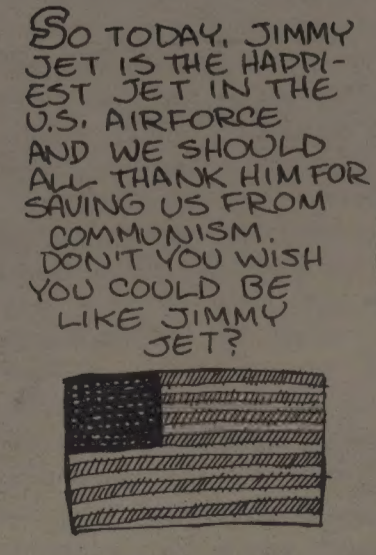 SO TODAY, JIMMY
JET IS THE HAPPI-
EST JET IN THE
U.S. AIRFORCE
AND WE SHOULD
ALL THANK HIM FOR
SAVING US FROM
COMMUNISM.
DON'T YOU WISH
YOU COULD BE
LIKE JIMMY
JET?